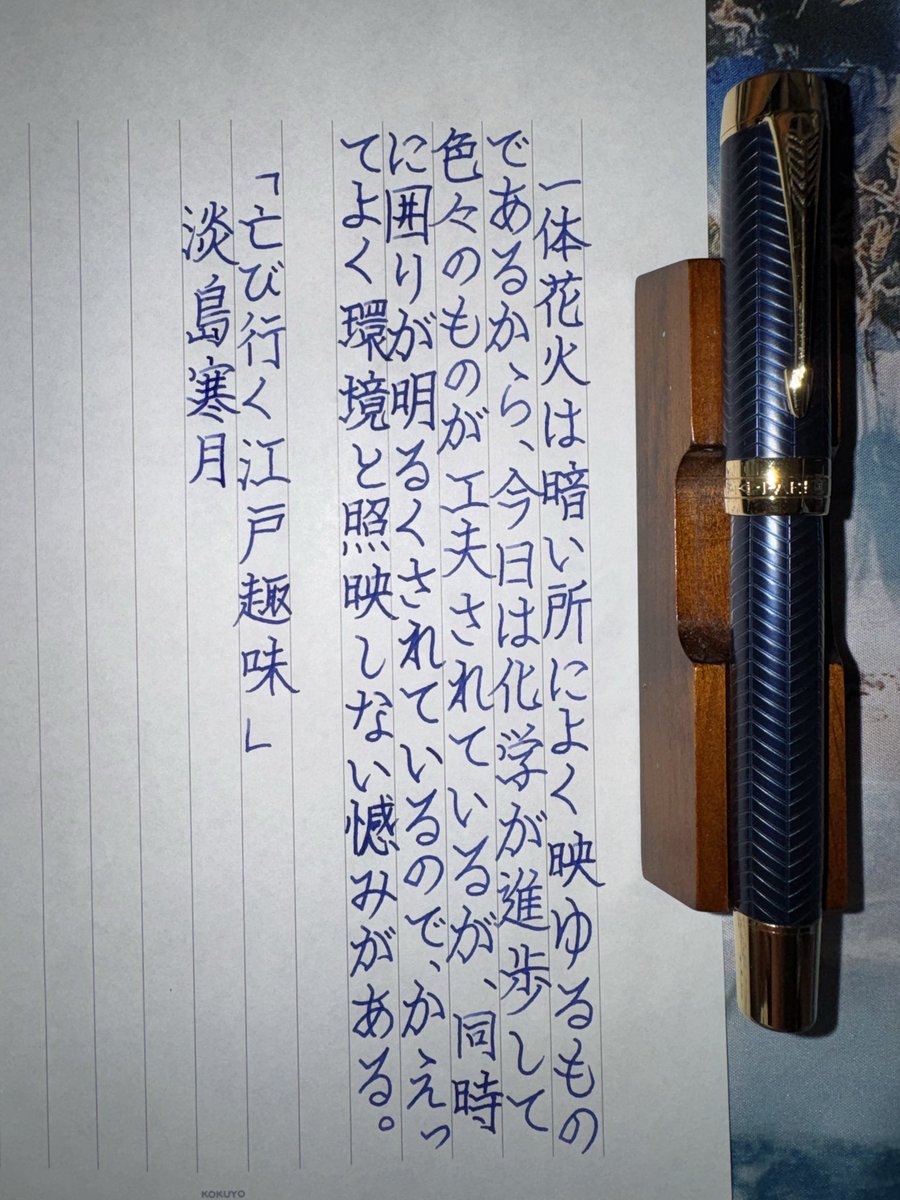 一体花火は暗い所によく映ゆるもの
であるから、今日は化学が進歩して
色々のものが工夫されているが、同時
に囲りが明るくされているので、かえっ
てよく環境と照映しない憾みがある。
「亡び行く江戸趣味」
淡島寒月
KOKUYO